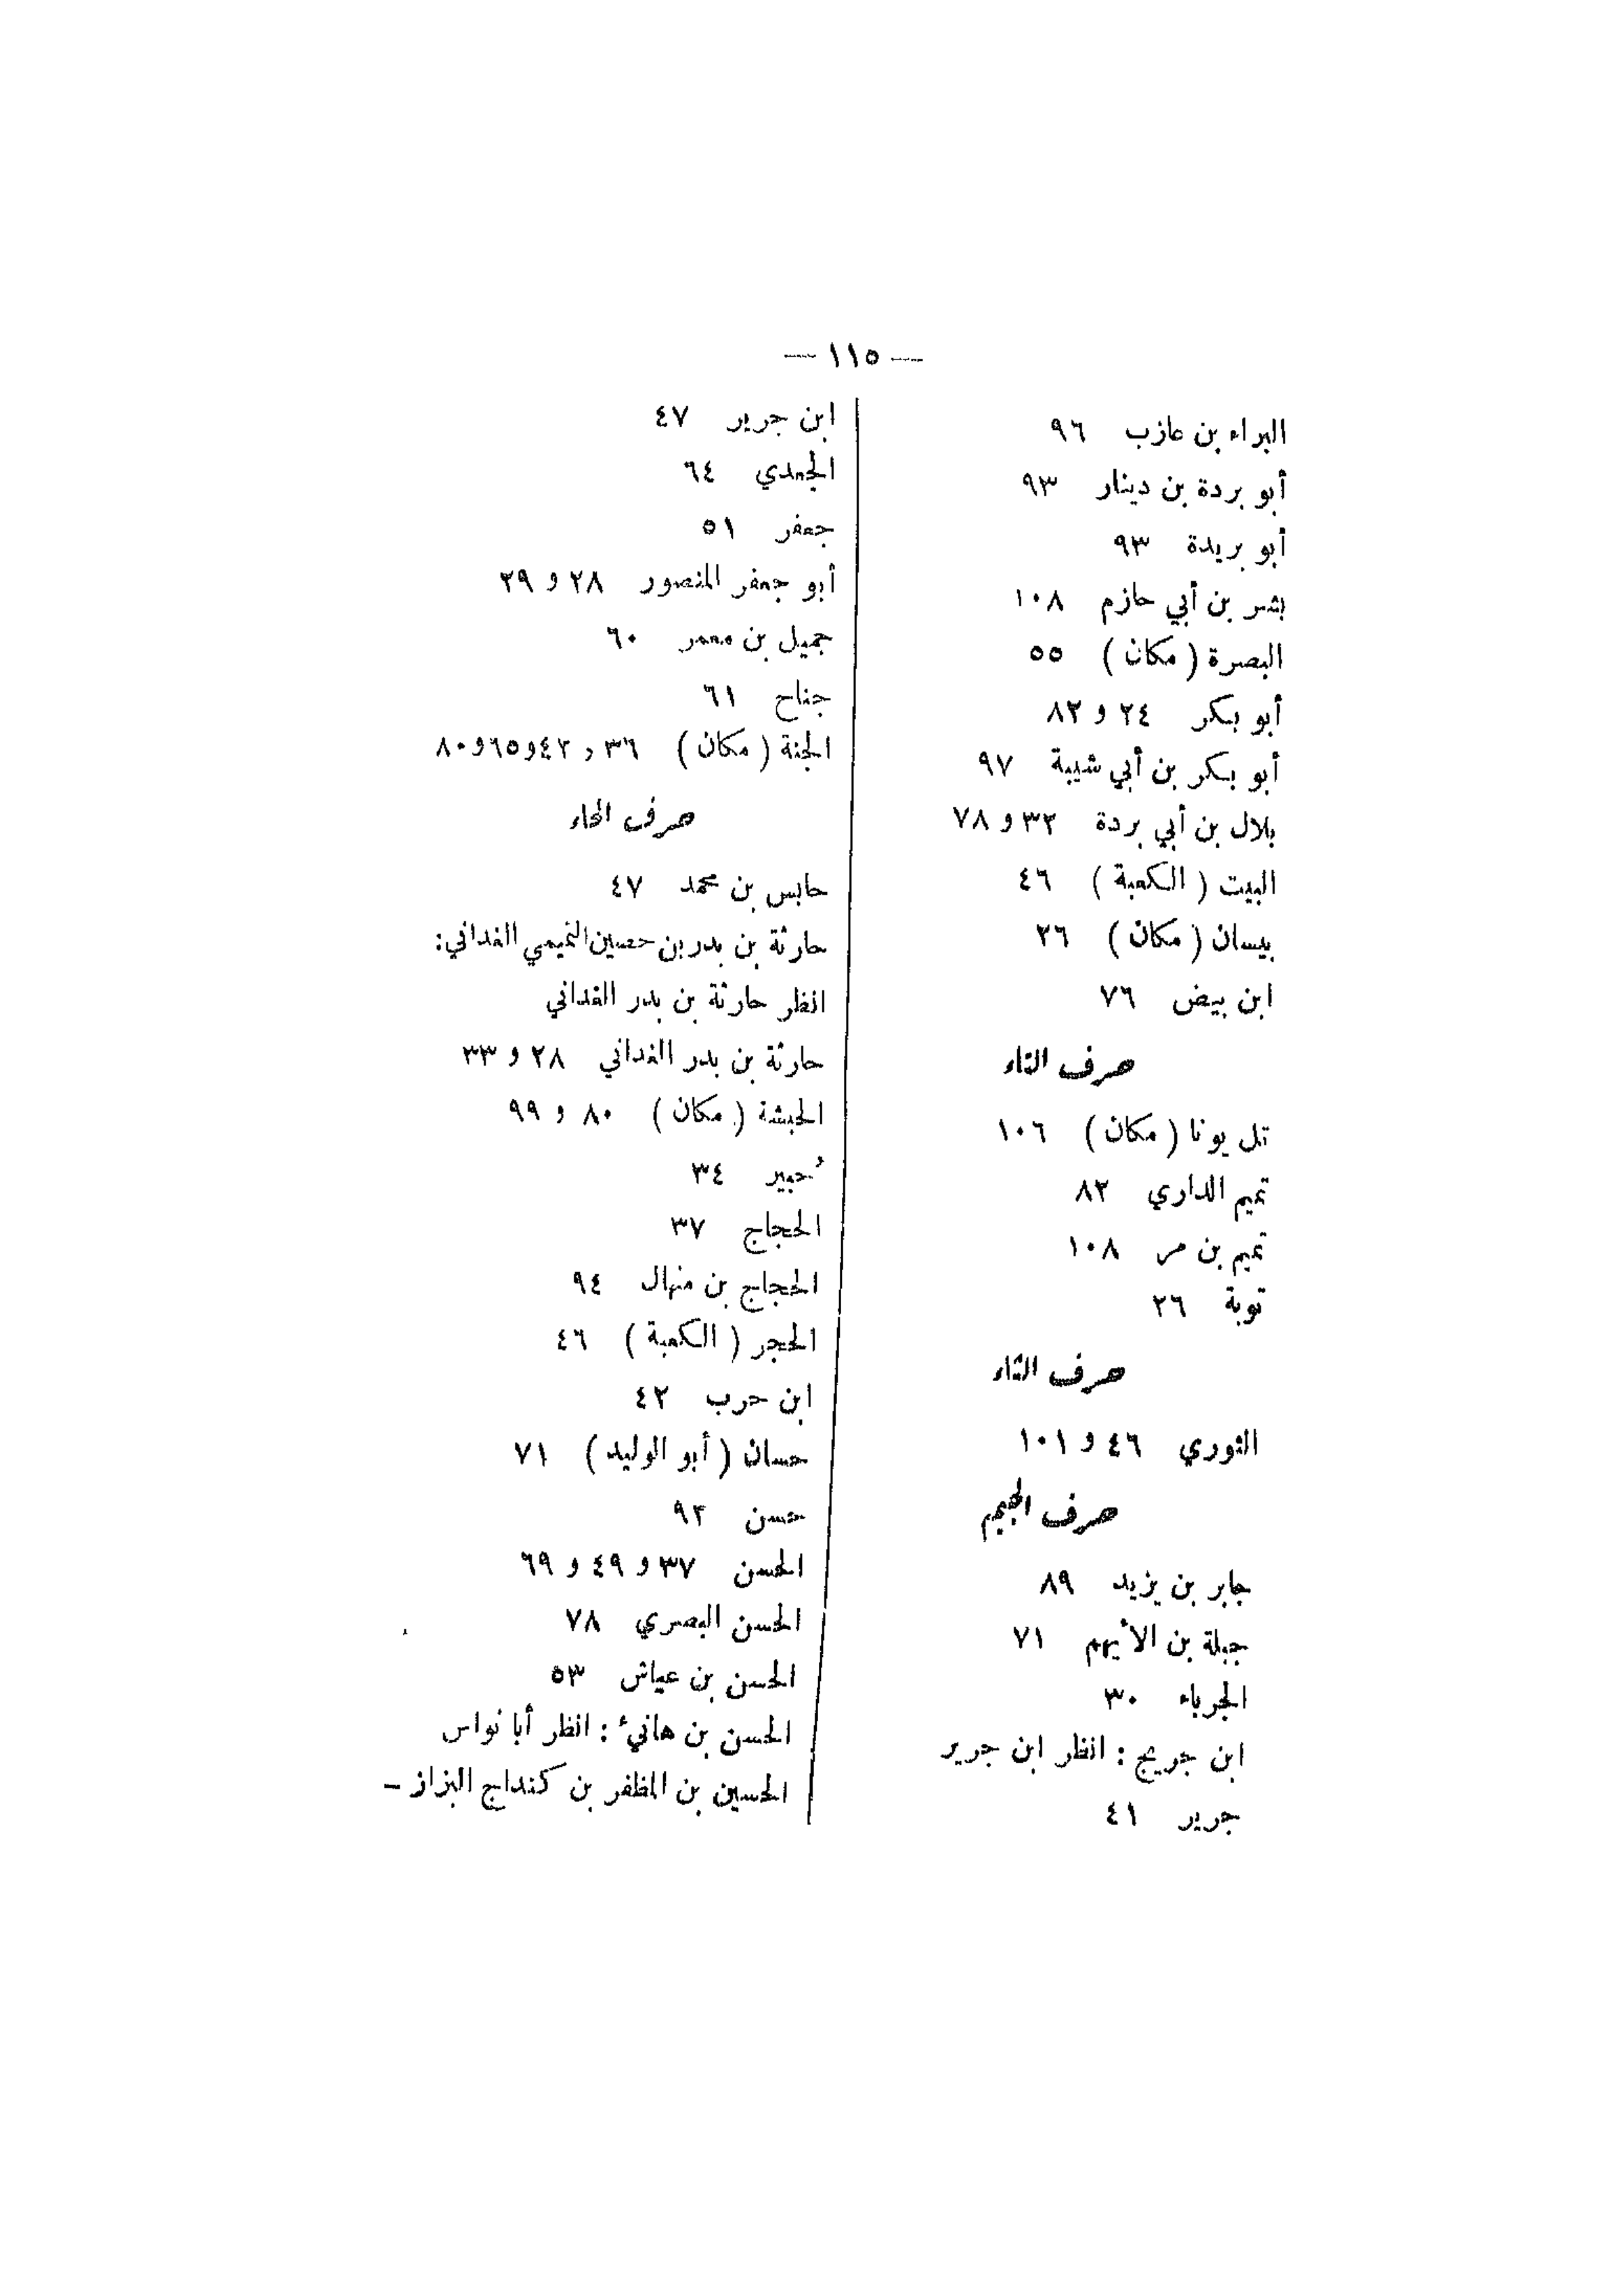 — ١١٥ —
البراء بن عازب ٩٦
أبو بردة بن دينار ٩٣
أبو بريدة ٩٣
بشر بن أبي حازم ١٠٨
البصرة ( مكان ) ٥٥
أبو بكر ٢٤ و ٨٢
أبو بكر بن أبي شيبة ٩٧
بلال بن أبي بردة ٣٢ و ٧٨
البيت ( الكعبة ) ٤٦
بيسان ( مكان ) ٢٦
ابن بيض ٧٦
حرف التاء
تل يونا ( مكان ) ١٠٦
تميم الداري ٨٢
تميم بن مر ١٠٨
توبة ٢٦
حرف الثاء
الثوري ٤٦ و ١٠١
حرف الجيم
جابر بن يزيد ٨٩
جبلة بن الأيهم ٧١
الجرباء ٣٠
ابن جريج : انظر ابن جرير
جرير ٤١
ابن جرير ٤٧
الجعدي ٦٤
جعفر ٥١
أبو جعفر المنصور ٢٨ و ٢٩
جميل بن معمر ٦٠
جناح ٦١
الجنة ( مكان ) ٣٦ و ٤٢و٦٥و٨٠
حرف الحاء
حابس بن محمد ٤٧
حارثة بن بدر بن حصين التميمي الغداني:
انظر حارثة بن بدر الغداني
حارثة بن بدر الغداني ٢٨ و ٣٣
الحبشة ( مكان ) ٨٠ و ٩٩
حُبير ٣٤
الحجاج ٣٧
الحجاج بن منهال ٩٤
الحجر ( الكعبة ) ٤٦
ابن حرب ٤٢
حسان ( أبو الوليد ) ٧١
حسن ٩٢
الحسن ٣٧ و ٤٩ و ٦٩
الحسن البصري ٧٨
الحسن بن عياش ٥٣
الحسن بن هانيء : انظر أبا نواس
الحسين بن المظفر بن كنداج البزاز –